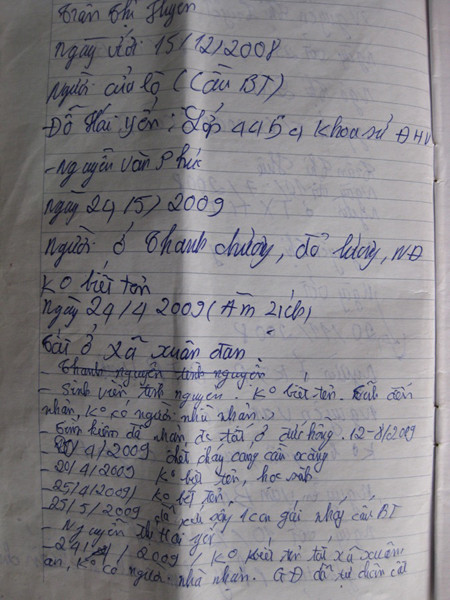 Trần Thị Huyền
Ngày vớt: 15/12/2008
Người cửa lò (Cầu BT)
Đỗ Hải yến: Lớp 44 khoa sử ĐHV
- Nguyễn văn Phúc
Ngày 24/5/2009
Người ở Thanh chương, đô lương, NĐ
Ko biết tên
Ngày 24/4 2009 (Âm lịch)
Tại ở xã xuân đan
Thanh nguyện tình nguyện
- Sinh viên tình nguyện. Ko biết tên. đến
nhận, Ko có người nhà nhận
- Tìm kiếm đã nhận, ở đức hồng. 12-8/2009
/4/2009 chết cháy can xăng
20/4/2009 Ko biết tên, học sinh
25/4/2009/ Ko biết tên
25/5/2009 1 con gái nhảy cầu BT
- Nguyễn thị Hai
- 24/ / 2009/ Ko biết tên tại xã xuân
an, Ko có người nhà nhận. GĐ đã